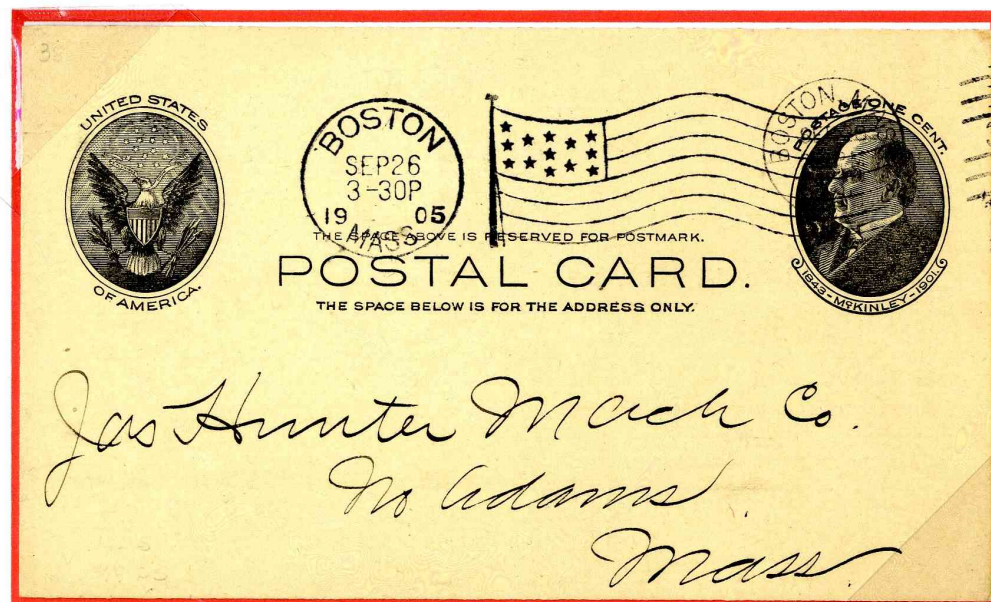 3
UNITED STATES
OF AMERICA.
BOSTON
SEP 26
3-30P
19 05
MASS
BOSTON, MASS
POSTAGE ONE CENT.
1843-McKINLEY-1901.
THE SPACE ABOVE IS RESERVED FOR POSTMARK.
POSTAL CARD.
THE SPACE BELOW IS FOR THE ADDRESS ONLY.
Jas Hunter Mach Co.
No Adams
Mass.